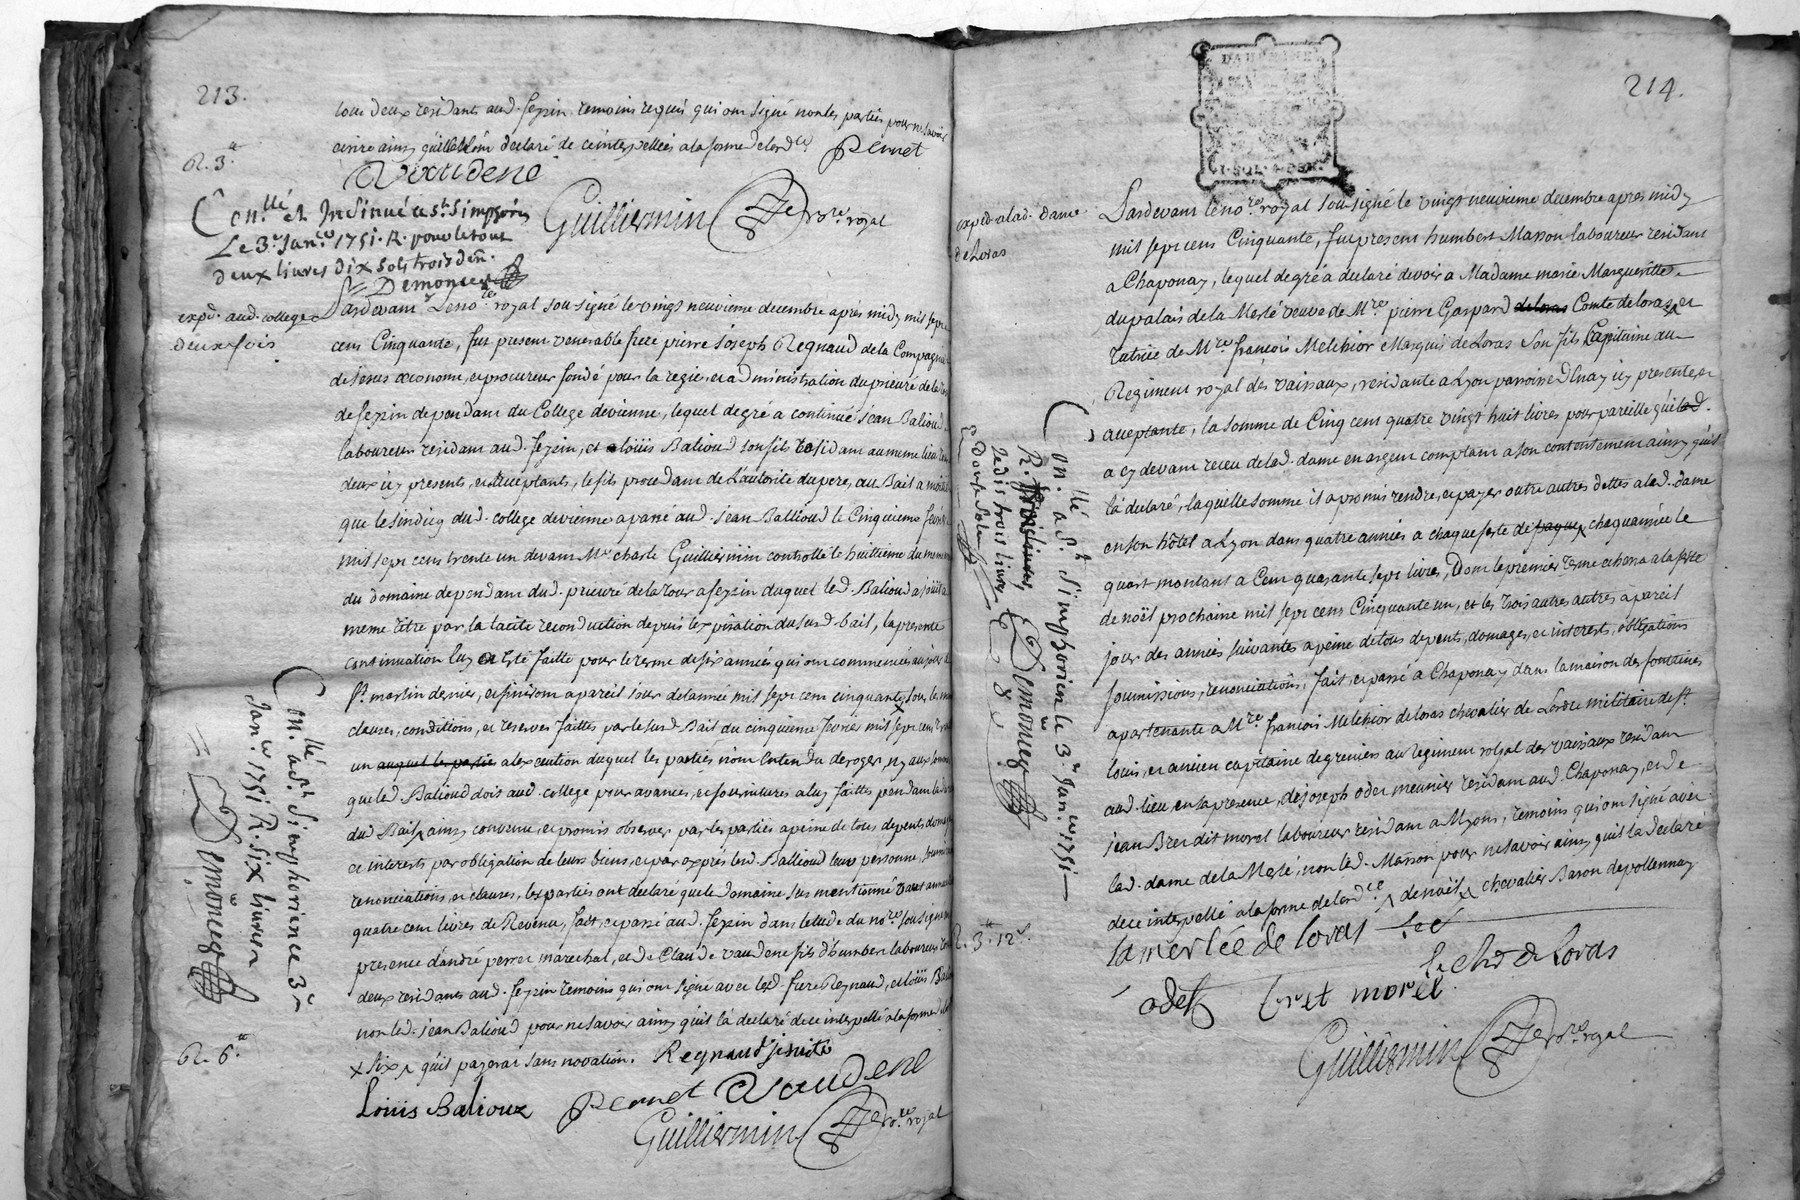 213.
tous deux residants aud. feyzin temoins requis qui ont signé non les parties pour ne savoir
ecrire ainsy quils l'ont declaré de ce interpellées a la forme de lord.ce Perret
R. 3.#
Vaudene
Guilliermin no.re royal
Con.llé et Insinué a St. Simphorien
Le 3e Janer 1751. R. pour le tout
deux livres dix sols trois den.
Demoncez
expd. aud. college
deux fois
Pardevant Le no.re royal sousigné le vingt neuvieme decembre apres midy mil sept
cens Cinquante, fut present venerable frere pierre Joseph Regnaud de la Compagnie
de Jesus œconome, et procureur fondé pour la regie, et administration du prieuré de la tour
de feyzin dependant du College de vienne, lequel degré a continué a Jean Balioud
laboureur residant aud. feyzin, et a loüis Balioud son fils residant au meme lieu tous
deux icy presents, et acceptants, le fils procedant de l'autorité du pere, au Bail a
que le sindicq dud. college de vienne a passé aud. Jean Ballioud le Cinquieme fevrier
mil sept cens trente un devant Me charle Guilliermin controllé le huitieme du meme
du domaine dependant dud. prieuré de la tour a feyzin duquel led. Balioud a joüit a
meme titre par la tacite reconduction depuis l'expiration dususd. bail, la presente
continuation luy a esté faitte pour le terme de six années qui ont commencées au jour de
St. martin dernier, et finiront a pareil jour de l'année mil sept cent cinquante x sous les memes
clauses, conditions, et reserves faittes par le susd. Bail du cinquieme fevrier mil sept cens trente
un auquel les partie a l'exécution duquel les parties n'ont entendu deroger, ny aux sommes
que led. Balioud doit aud. college pour avances, et fournitures a luy faittes pendant le
dud. Bail ainsy convenu, et promis observer par les parties a peine de tous depents domages
et interests par obligation de leurs biens, et par exprès led. Ballioud leur personne, soumissions
renonciations, et clauses, les parties ont declaré que le domaine sus mentionné vaut annuellement
quatre cent livres de Revenu, fait, et passé aud. feyzin dans letude du no.re sousigné en
presence d'andré perret marechal, et de Claude vaudene fils d'humbert laboureur tous
deux residants aud. feyzin temoins qui ont signé avec led. frere Reynaud, et loüis Balioud
non led. Jean Balioud pour ne savoir ainsy quil l'a declaré de ce interpellé a la forme de lord.
x six quil payerat sans novation. Regnaud Jesuite
Louis Balioux Perret Vaudene
Guilliermin no.re royal
Con.llé a St. Simphorien ce 3e
Janer 1751 R. six livres
Demoncez
R. 6.#
214.
DAUPHINÉ
expd. a lad. dame
de Loras
Pardevant le no.re royal sousigné le vingt neuvieme decembre apres midy
mil sept cens Cinquante, fut present humbert Masson laboureur residant
a Chaponay, lequel degré a declaré devoir a Madame marie Margueritte
du palais de la Merlé veuve de Mre pierre Gaspard deloras Comte de loras et
tutrice de Mre françois Melchior Marquis de Loras son fils Capitaine au
Regiment royal des vaisseaux, residante a Lyon paroisse D'Enay icy presente, et
acceptante, la somme de Cinq cent quatre vingt huit livres pour pareille quil
a cy devant receu de lad. dame en argent comptant a son contentement ainsy quil
l'a declaré, laquelle somme il a promis rendre, et payer outre autres dettes a lad. dame
en son hôtel a Lyon dans quatre années a chaque feste de paque chaque année le
quart montant a Cent quarante sept livres, dont le premier terme echerra a la feste
de noël prochaine mil sept cens Cinquante un, et les trois autres autres a pareil
jour des années suivantes a peine de tous depents, domages, et interests, obligations
soumissions, renonciations, fait, et passé a Chaponay dans la maison des fontaines
apartenante a Mre françois Melchior de loras chevalier de Lordre militaire de St.
louis, et ancien capitaine de greniers au regiment royal des vaisseaux residant
aud. lieu en sa presence, de joseph oder meunier residant aud. Chaponay, et de
jean Bret dit morel laboureur residant a Mions, temoins qui ont signé avec
lad. dame de la Merlé, non led. Masson pour ne savoir ainsy quil l'a declaré
de ce interpellé a la forme de lord.ce de noël chevalier Baron de pollennay
la merlée de loras
le chr. de Loras
odet bret morel
Guilliermin no.re royal
Con.llé a St. Simphorien le 3e Janer 1751
R. trois livres Demoncez
R. 3.# 12s.